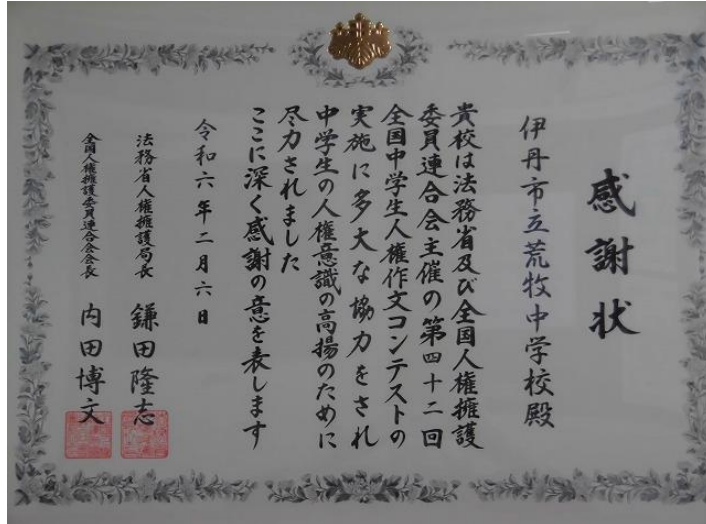 感謝状
伊丹市立荒牧中学校殿
貴校は法務省及び全国人権擁護
委員連合会主催の第四十二回
全国中学生人権作文コンテストの
実施に多大な協力をされ
中学生の人権意識の高揚のために
尽力されました
ここに深く感謝の意を表します
令和六年二月六日
法務省人権擁護局長 鎌田隆志
全国人権擁護委員連合会会長 内田博文